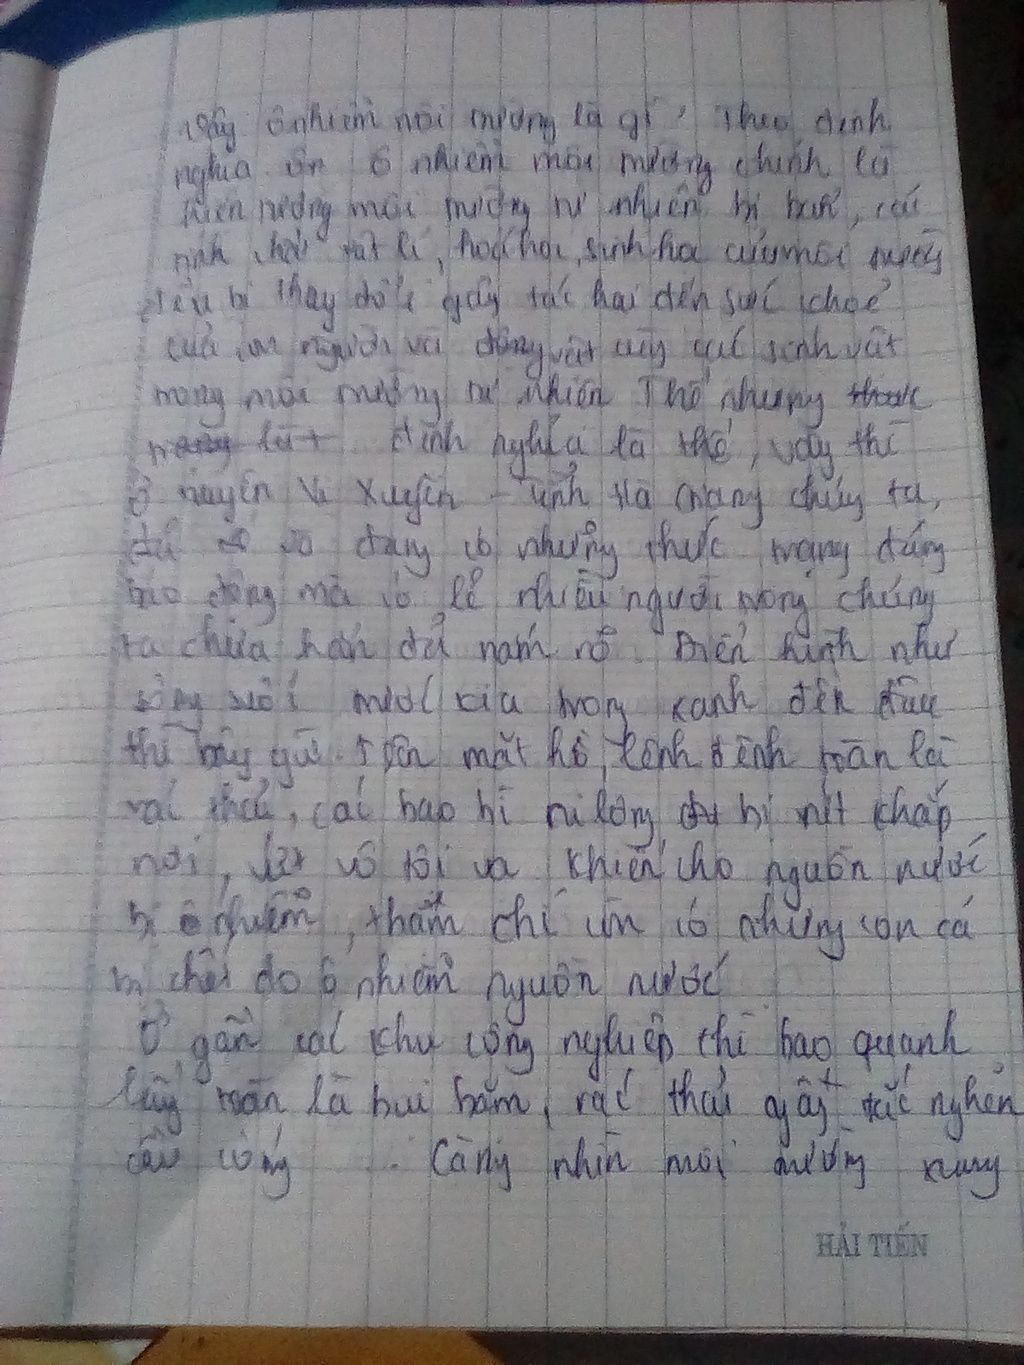 Vậy ô nhiễm môi trường là gì? Theo định
nghĩa ô nhiễm môi trường chính là
hiện tượng môi trường tự nhiên bị bẩn, các
tính chất vật lí, hoá học, sinh học của môi trường
bị thay đổi gây tác hại đến sức khoẻ
của con người và động vật cùng các sinh vật
trong môi trường tự nhiên Thế nhưng
định nghĩa là thế, vậy thì
Ở huyện Vị Xuyên - tỉnh Hà Giang chúng ta,
đã và đang có những thực trạng đáng
báo động mà có lẽ nhiều người trong chúng
ta chưa hẳn đã nắm rõ. Điển hình như
sông suối trước kia trong xanh đến đâu
thì bây giờ trên mặt hồ, lênh đênh toàn là
rác thải, các bao bì ni lông bị vứt khắp
nơi, vô tội vạ khiến cho nguồn nước
bị ô nhiễm, thậm chí còn có những con cá
bị chết do ô nhiễm nguồn nước
Ở gần các khu công nghiệp thì bao quanh
đây toàn là bụi bặm, rác thải gây tắc nghẽn
cầu cống ... Càng nhìn môi trường xung
HẢI TIẾN